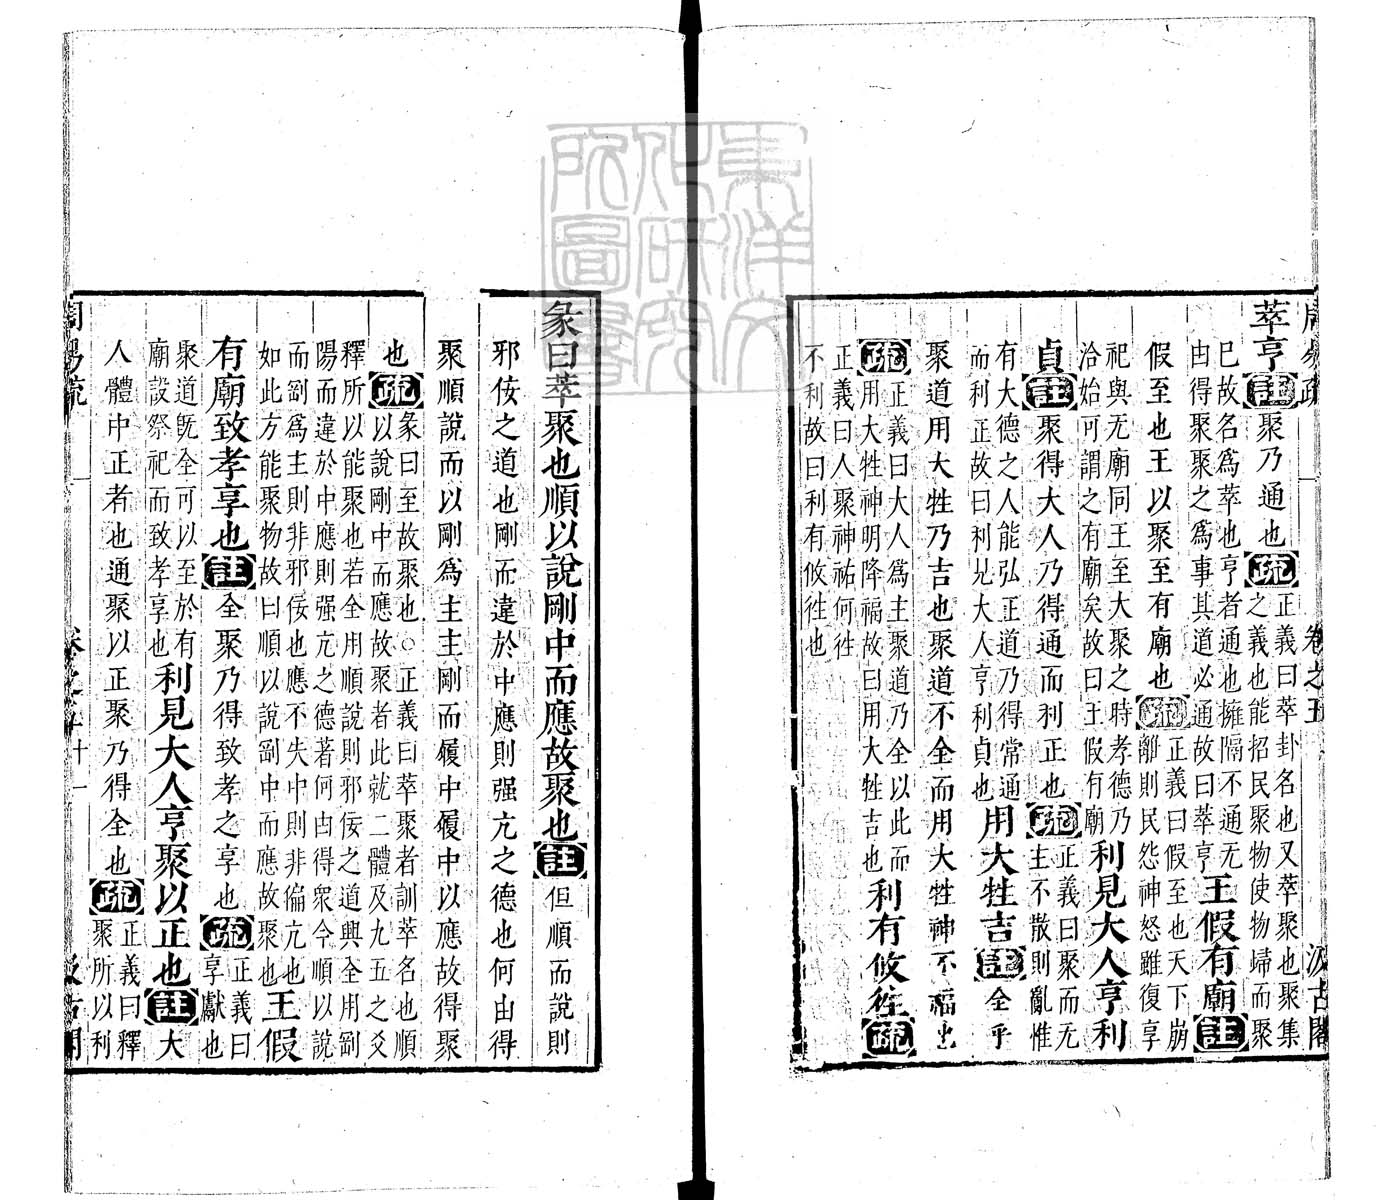 周易疏 卷之五 汲古閣
萃亨註聚乃通也疏正義曰萃卦名也又萃聚也聚集
之義也能招民聚物使物歸而聚
已故名爲萃也亨者通也擁隔不通无
由得聚聚之爲事其道必通故曰萃亨王假有廟註
假至也王以聚至有廟也疏正義曰假至也天下崩
離則民怨神怒雖復享
祀與无廟同王至大聚之時孝德乃
洽始可謂之有廟矣故曰王假有廟利見大人亨利
貞註聚得大人乃得通而利正也疏正義曰聚而无
主不散則亂惟
有大德之人能弘正道乃得常通
而利正故曰利見大人亨利貞也用大牲吉註全乎
聚道用大牲乃吉也聚道不全而用大牲神不福也
疏正義曰大人爲主聚道乃全以此而
用大牲神明降福故曰用大牲吉也利有攸往疏
正義曰人聚神祐何往
不利故曰利有攸往也
彖曰萃聚也順以說剛中而應故聚也註但順而說則
邪佞之道也剛而違於中應則强亢之德也何由得
聚順說而以剛爲主主剛而履中履中以應故得聚
也疏彖曰至故聚也○正義曰萃聚者訓萃名也順
以說剛中而應故聚者此就二體及九五之爻
釋所以能聚也若全用順說則邪佞之道興全用剛
陽而違於中應則强亢之德著何由得衆今順以說
而剛爲主則非邪佞也應不失中則非偏亢也
如此方能聚物故曰順以說剛中而應故聚也王假
有廟致孝享也註全聚乃得致孝之享也疏正義曰
享獻也
聚道既全可以至於有
廟設祭祀而致孝享也利見大人亨聚以正也註大
人體中正者也通聚以正聚乃得全也疏正義曰釋
聚所以利
周易疏 卷之五 十一 汲古閣
東洋文化研究所圖書